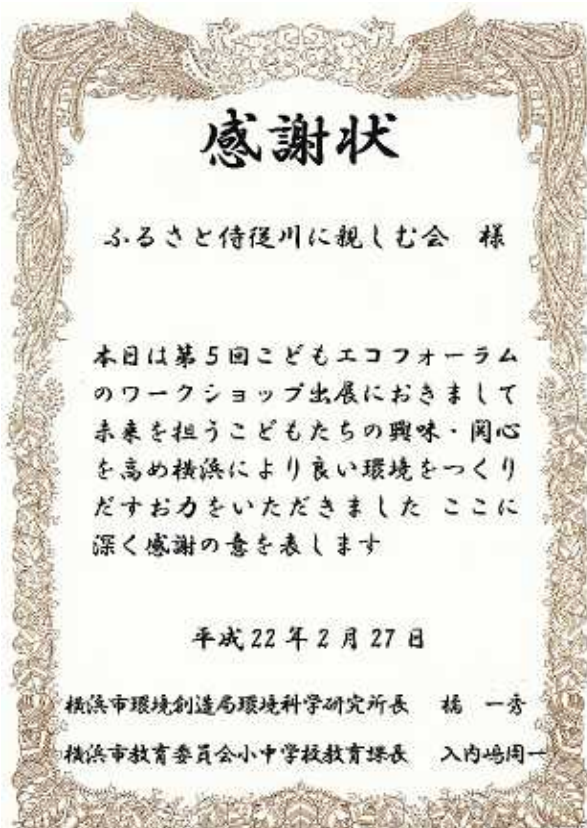 感謝状
ふるさと侍従川に親しむ会 様
本日は第5回こどもエコフォーラム
のワークショップ出展におきまして
未来を担うこどもたちの興味・関心
を高め横浜により良い環境をつくり
だすお力をいただきました ここに
深く感謝の意を表します
平成22年2月27日
横浜市環境創造局環境科学研究所長 橘 一秀
横浜市教育委員会小中学校教育課長 入内嶋周一